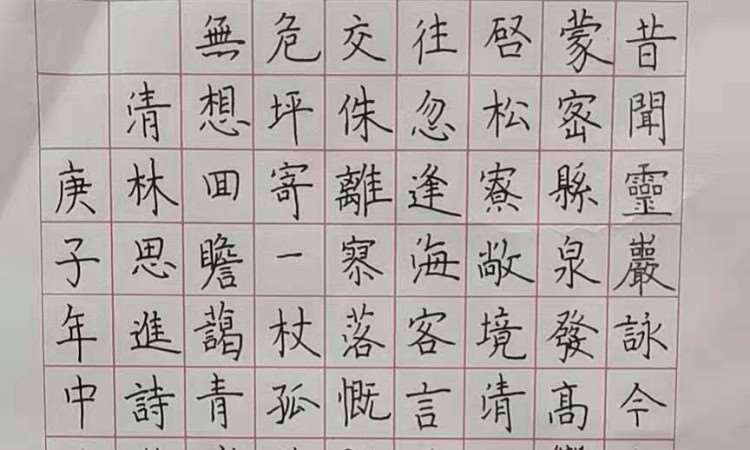 昔聞靈巖詠今
蒙密縣泉發高
啓松寮敞境清
往忽逢海客言
交侏離寥落慨
危坪寄一杖孤
無想回瞻藹青
清林思進詩
庚子年中